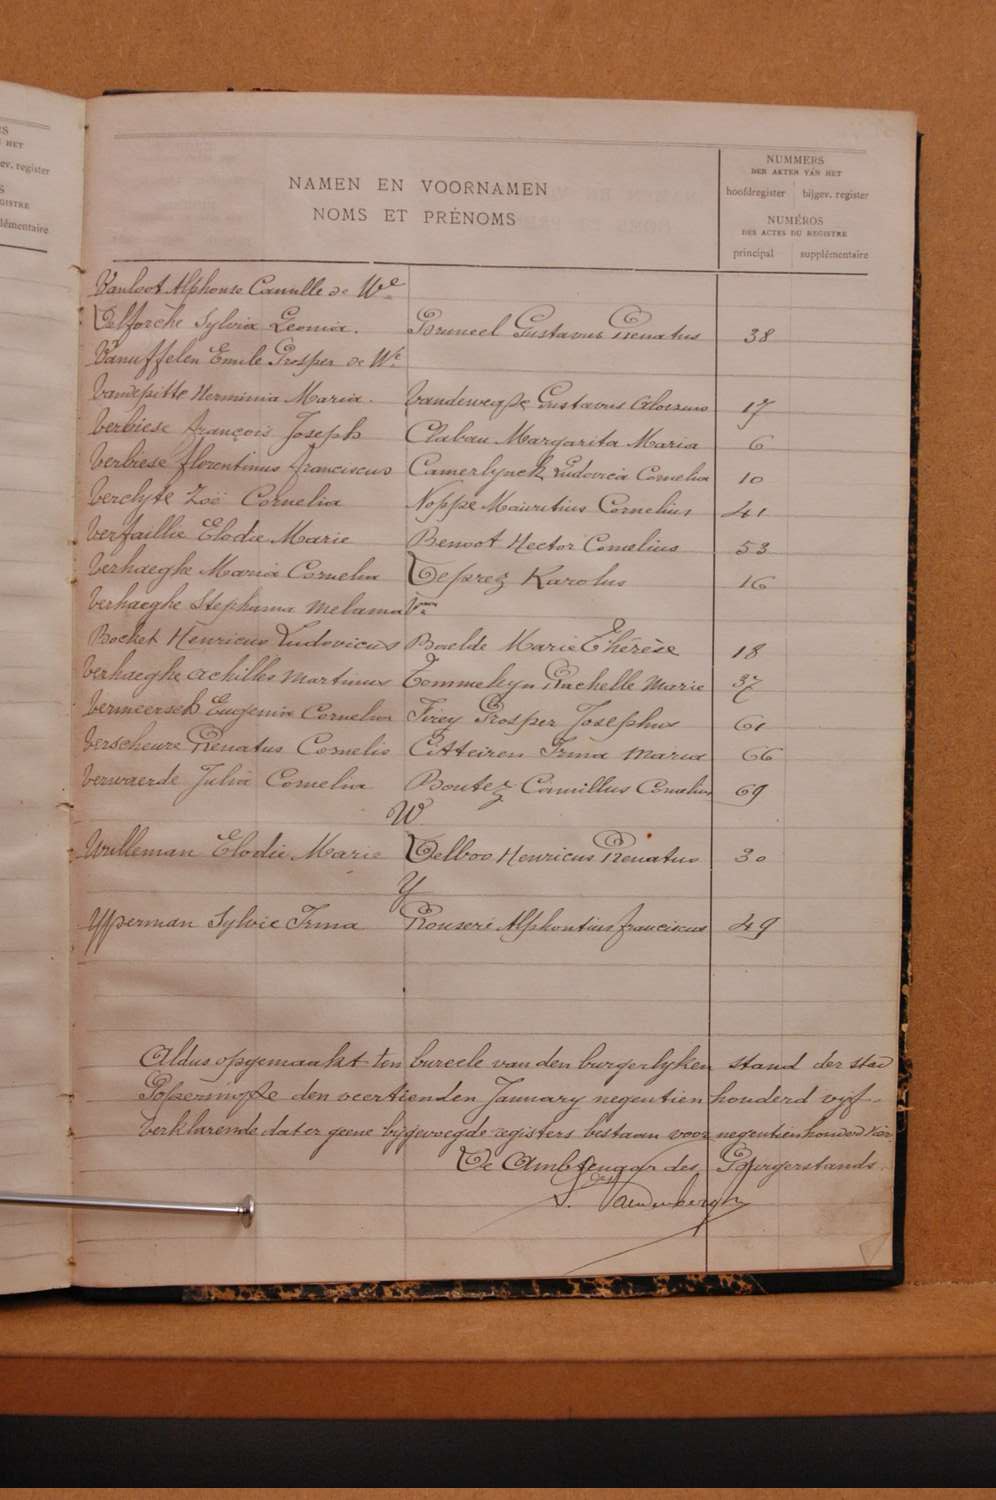 NAMEN EN VOORNAMEN
NOMS ET PRÉNOMS
NUMMERS
DER AKTEN VAN HET
hoofdregister bijgev. register
NUMÉROS
DES ACTES DU REGISTRE
principal supplémentaire
HET
ev. register
GISTRE
lémentaire
Vanloot Alphonse Camille de We
Delforche Sylvia Leonia. Bruneel Gustavus Renatus 38
Vanuffelen Emile Prosper de We
Vandepitte Herminia Maria. Vandeweghe Gustavus Aloïsius 17
Verbiese françois Joseph Clabau Margarita Maria 6
Verbiese florentinus franciscus Camerlynck Ludovica Cornelia 10
Verclyte Zoë Cornelia Noppe Mauritius Cornelius 41
Verfaillie Elodie Marie Benoot Hector Cornelius 53
Verhaeghe Maria Cornelia Deprez Karolus 16
Verhaeghe Stephania Melania
Bocket Henricus Ludovicus Baelde Marie Thérèse 18
Verhaeghe Achilles Martinus Tommeleyn Rachelle Marie 37
Vermeersch Eugenia Cornelia Firey Prosper Josephus 61
Verscheure Renatus Cornelis Irma Maria 66
Verwaerde Julia Cornelia Boutez Camillus Cornelius 69
W
Wulleman Elodie Marie Delboo Henricus Renatus 30
Y
Ypperman Sylvie Irma Rouseré Alphontius franciscus 49
Aldus opgemaakt ten bureele van den burgerlyken stand der stad
Poperinghe den veertienden January negentien honderd vyf.
Verklarende dat er geene bijgevoegde registers bestaan voor negentienhonderd vier
De Ambtenaar des Burgerstands.
Vandenbergh